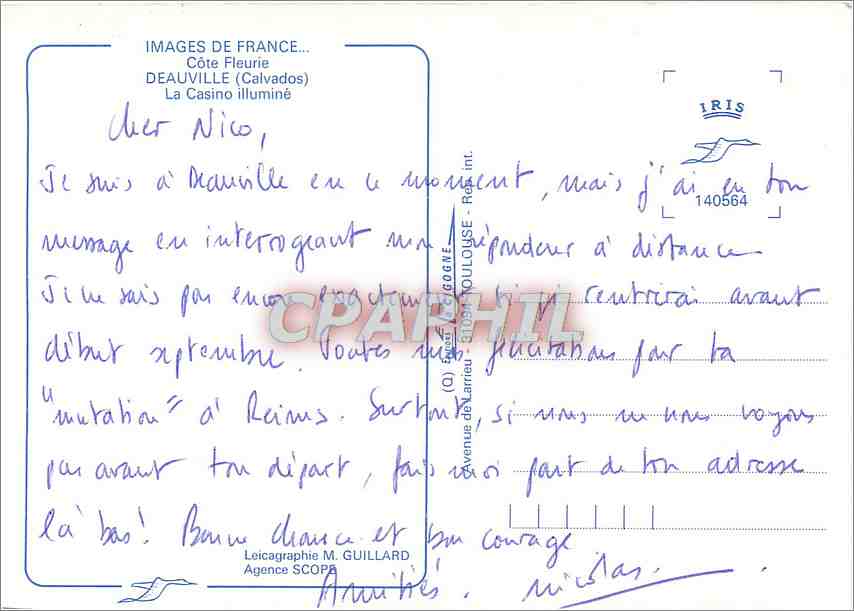 IMAGES DE FRANCE...
Côte Fleurie
DEAUVILLE (Calvados)
La Casino illuminé
IRIS
140564
Cher Nico,
Je suis à Deauville en ce moment, mais j'ai eu ton
message en interrogeant mon répondeur à distance
Je ne sais pas encore exactement si je rentrerai avant
début septembre. Toutes mes félicitations pour ta
"mutation" à Reims. Surtout, si nous ne nous voyons
pas avant ton départ, fais moi part de ton adresse
là bas! Bonne chance et bon courage
Amitiés. Nicolas.
(Q) Editions La CIGOGNE
Avenue de Larrieu 31094 TOULOUSE - Rep. int.
CPARHIL
Leicagraphie M. GUILLARD
Agence SCOPE